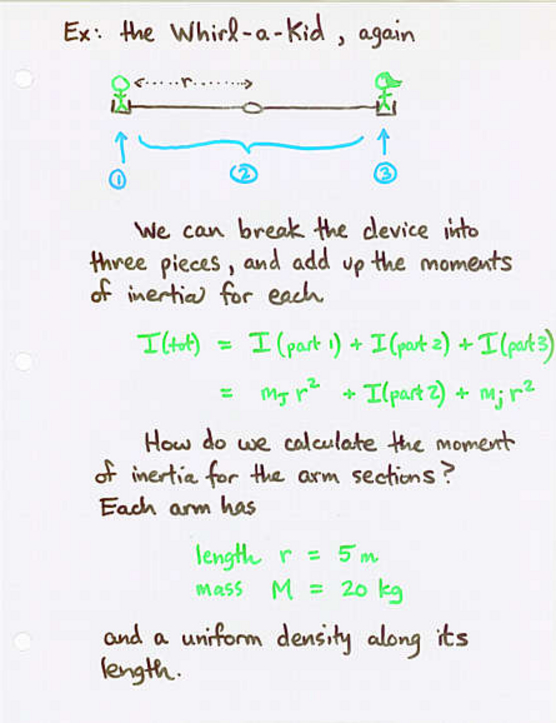 Ex: the Whirl-a-Kid, again
r
① ② ③
We can break the device into
three pieces, and add up the moments
of inertia for each
I(tot) = I(part 1) + I(part 2) + I(part 3)
= m_J r² + I(part 2) + m_j r²
How do we calculate the moment
of inertia for the arm sections?
Each arm has
length r = 5 m
mass M = 20 kg
and a uniform density along its
length.